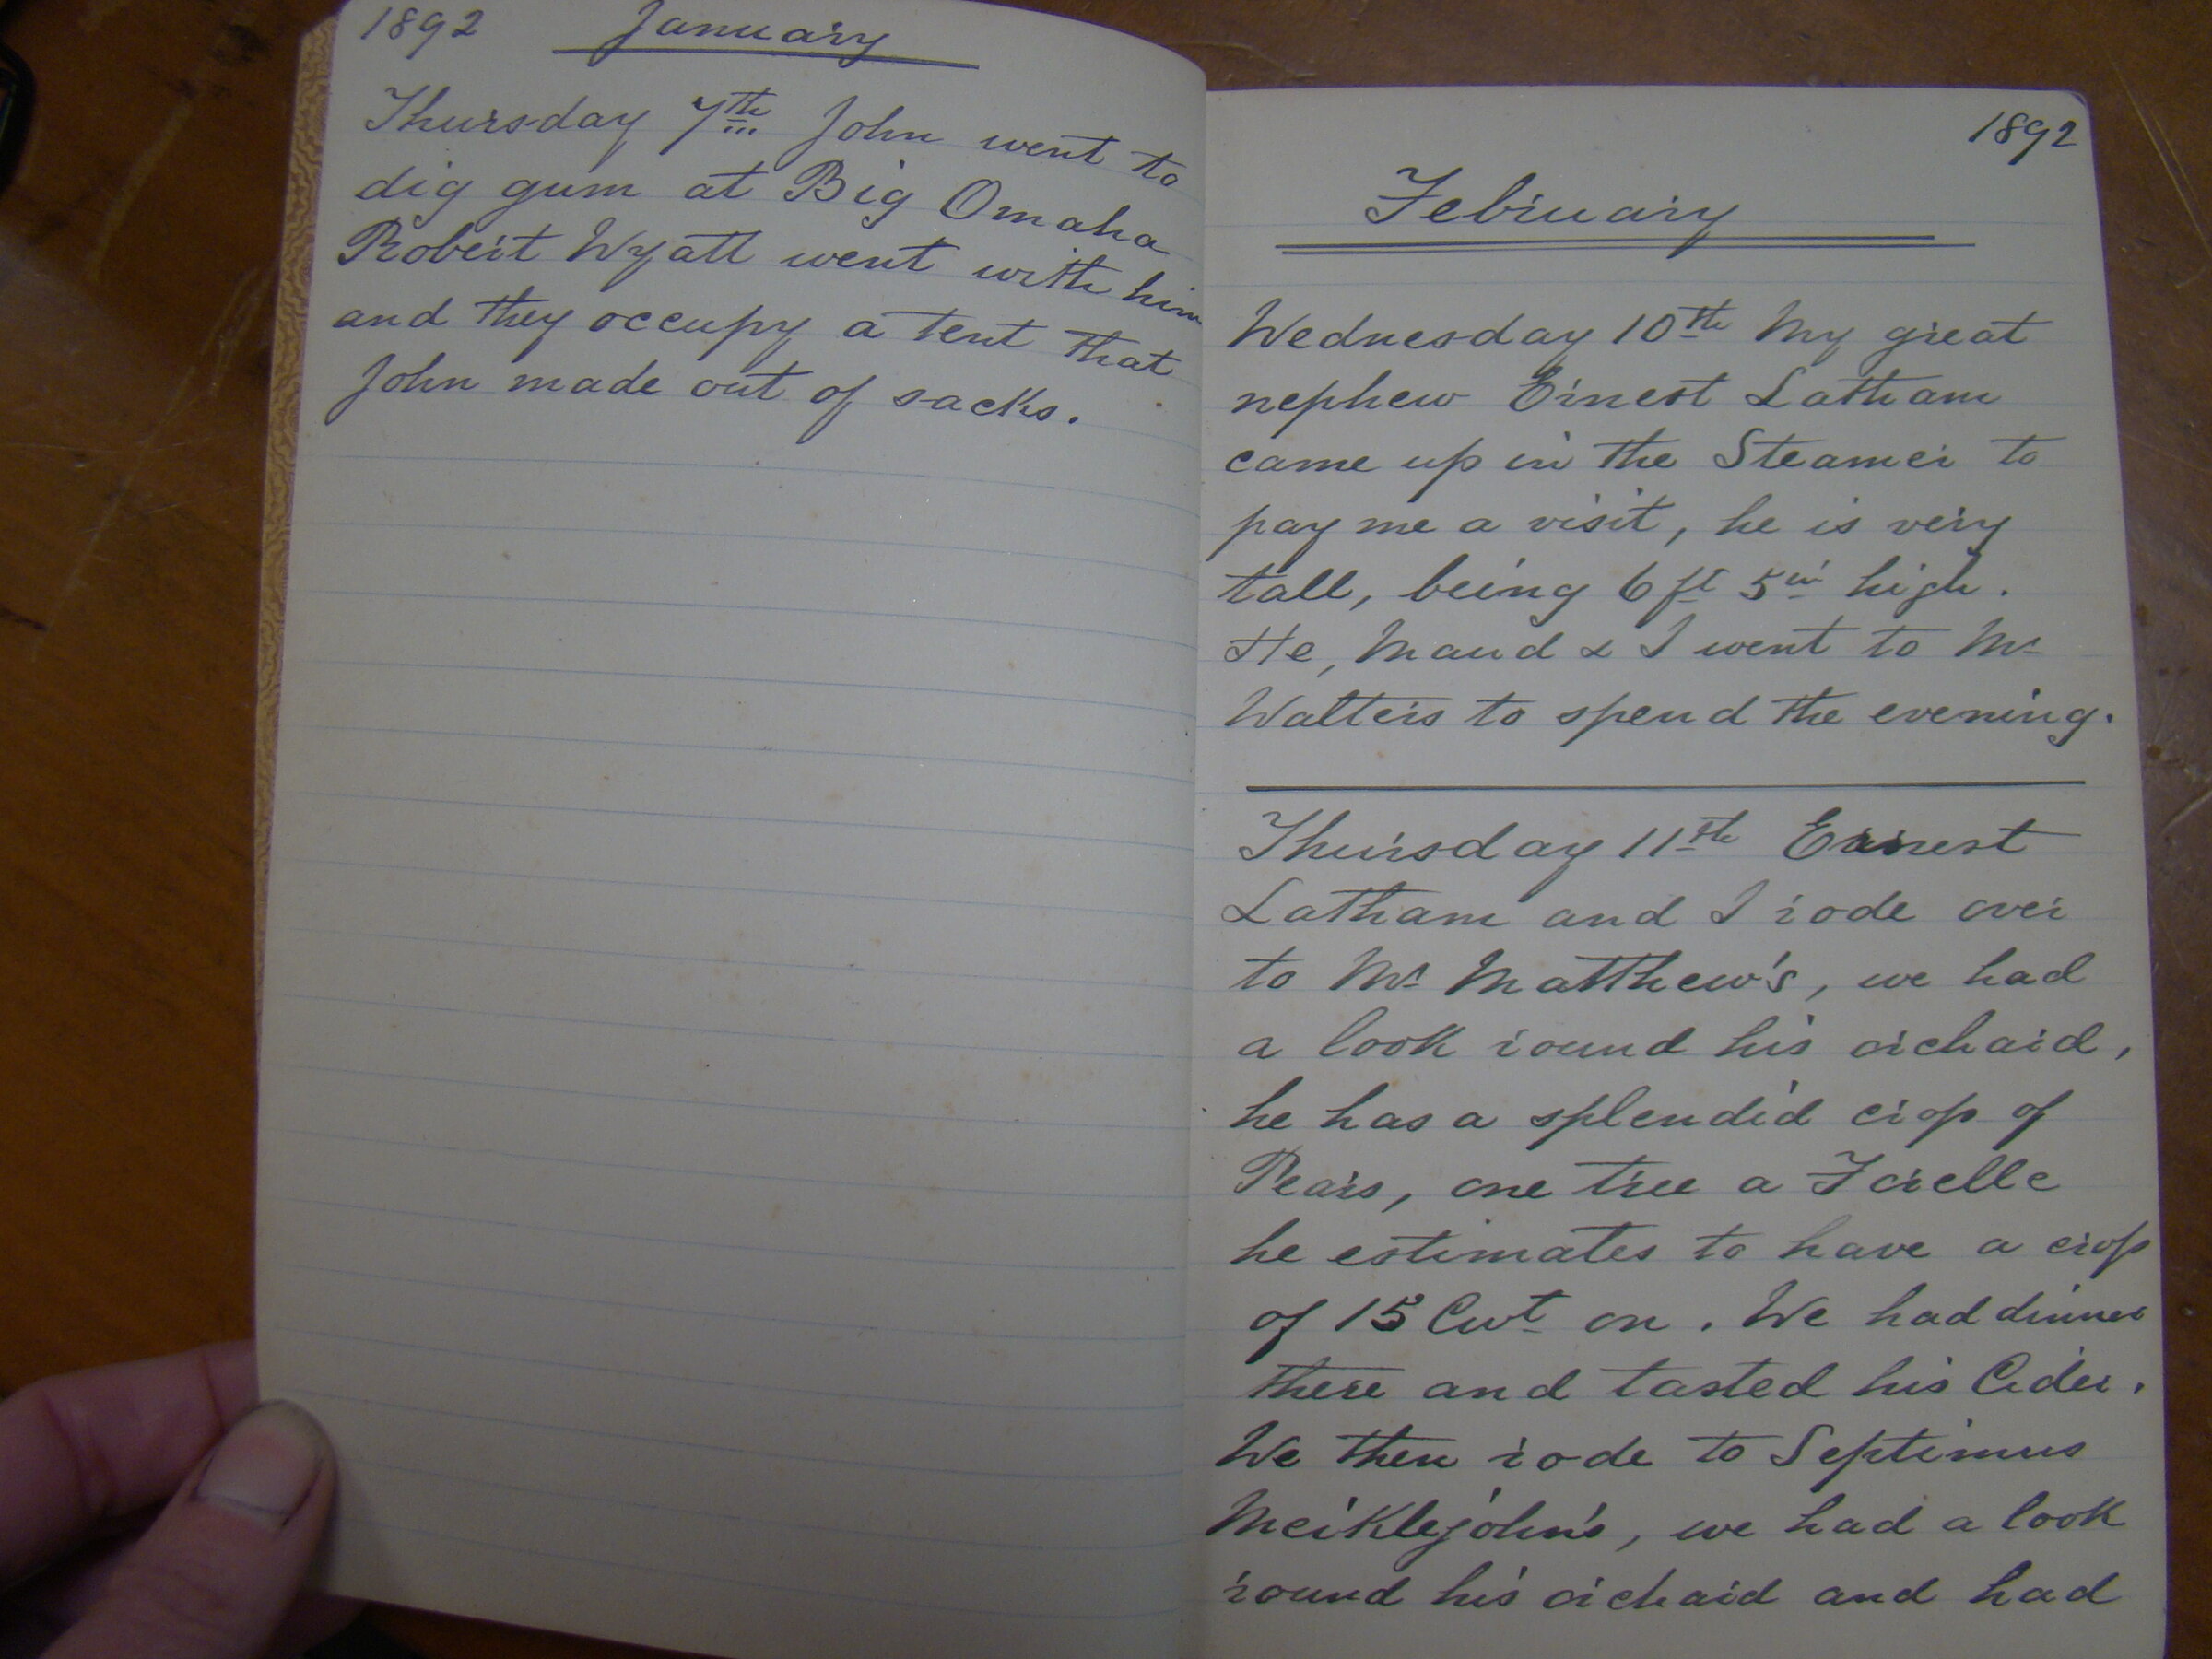 1892 January
Thursday 7th John went to
dig gum at Big Omaha
Robert Wyatt went with him
and they occupy a tent that
John made out of sacks.
1892
February
Wednesday 10th My great
nephew Ernest Latham
came up in the Steamer to
pay me a visit, he is very
tall, being 6 ft 5 in high.
He, Maud & I went to Mr
Walters to spend the evening.
Thursday 11th Ernest
Latham and I rode over
to Mr Matthew's, we had
a look round his orchard,
he has a splendid crop of
Pears, one tree a Forelle
he estimates to have a crop
of 15 Cwt on. We had dinner
there and tasted his Cider.
We then rode to Septimus
Meiklejohn's, we had a look
round his orchard and had